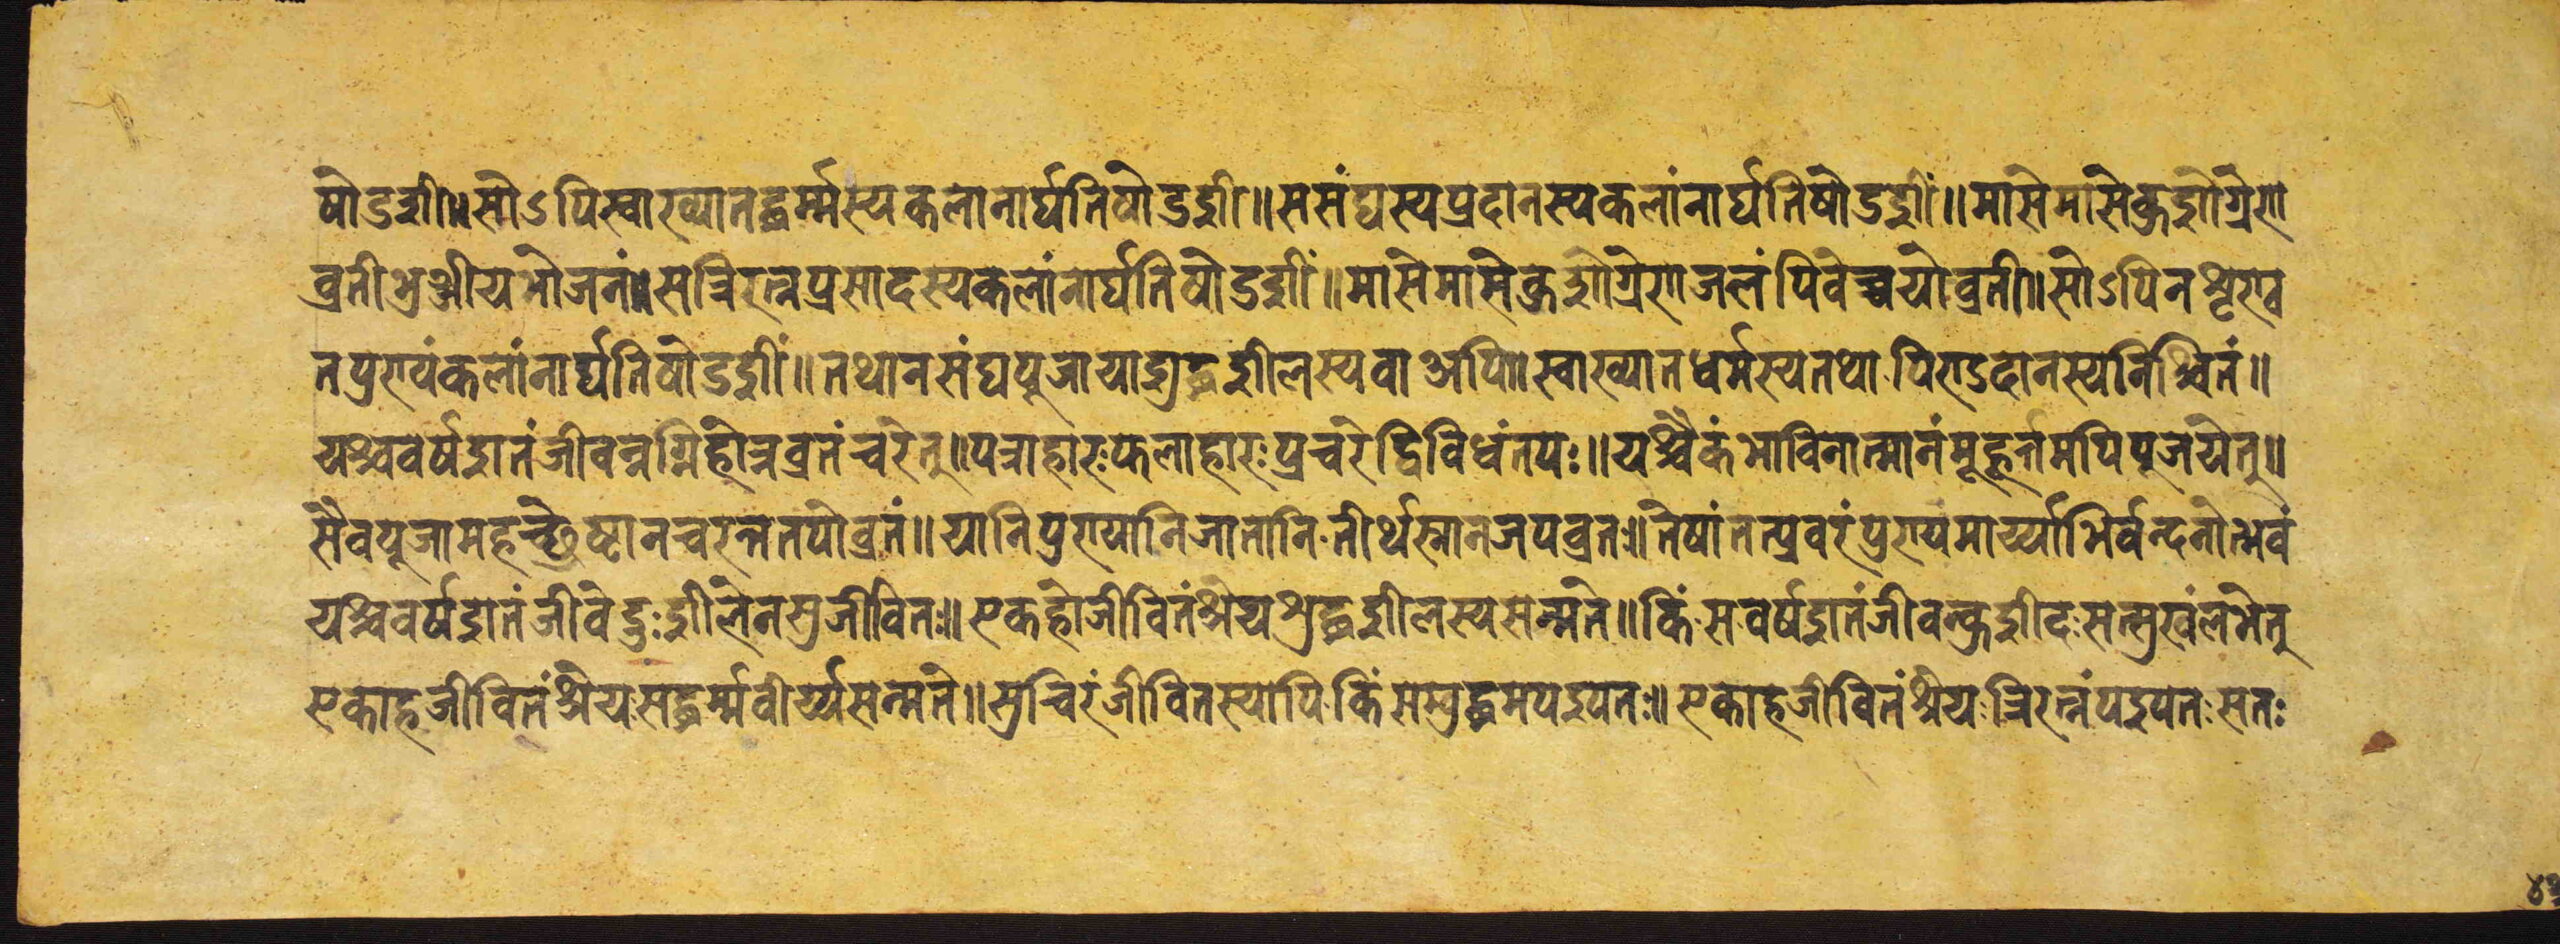 षोडशीं॥सोऽपिस्वाख्यातद्धर्म्मस्यकलानार्घतिषोडशीं॥ससंघस्यप्रदानस्यकलांनार्घतिषोडशीं॥मासेमासेकुशाग्रेण
व्रतीभुञ्जीयभोजनं॥सत्रिरत्नप्रसादस्यकलांनार्घतिषोडशीं॥मासेमासेकुशाग्रेणजलंपिवेच्चयोव्रती॥सोऽपिनशृण्व
तपुण्यंकलांनार्घतिषोडशीं॥तथानसंघपूजायाशुद्धशीलस्यवाअपि॥स्वाख्यातधर्मस्यतथापिण्डदानस्यनिश्चितं॥
यश्चवर्षशतंजीवन्नग्निहोत्रव्रतंचरेत्॥पत्राहारःफलाहारःप्रचरेद्विविधंतपः॥यश्चैकंभावितात्मानंमूहूर्त्तमपिपूजयेत्॥
सैवपूजामहच्छ्रेष्टानचरन्नतपोव्रतं॥यानिपुण्यानिजातानितीर्थस्नानजपव्रतः॥तेषांतत्प्रवरंपुण्यमार्य्याभिर्वन्दनोत्भवं
यश्चवर्षशतंजीवेदुःशीलेनसुजीवितः॥एकहोजीवितंश्रेयशुद्धशीलस्यसन्मते॥किंसवर्षशतंजीवन्कुशीदःसत्सुखंलभेत्
एकाहजीवितंश्रेयःसद्धर्म्मवीर्य्यसन्मते॥सुचिरंजीवितस्यापिकिंसस्युद्धमपश्यतः॥एकाहजीवितंश्रेयःत्रिरत्नंपश्यतःसतः